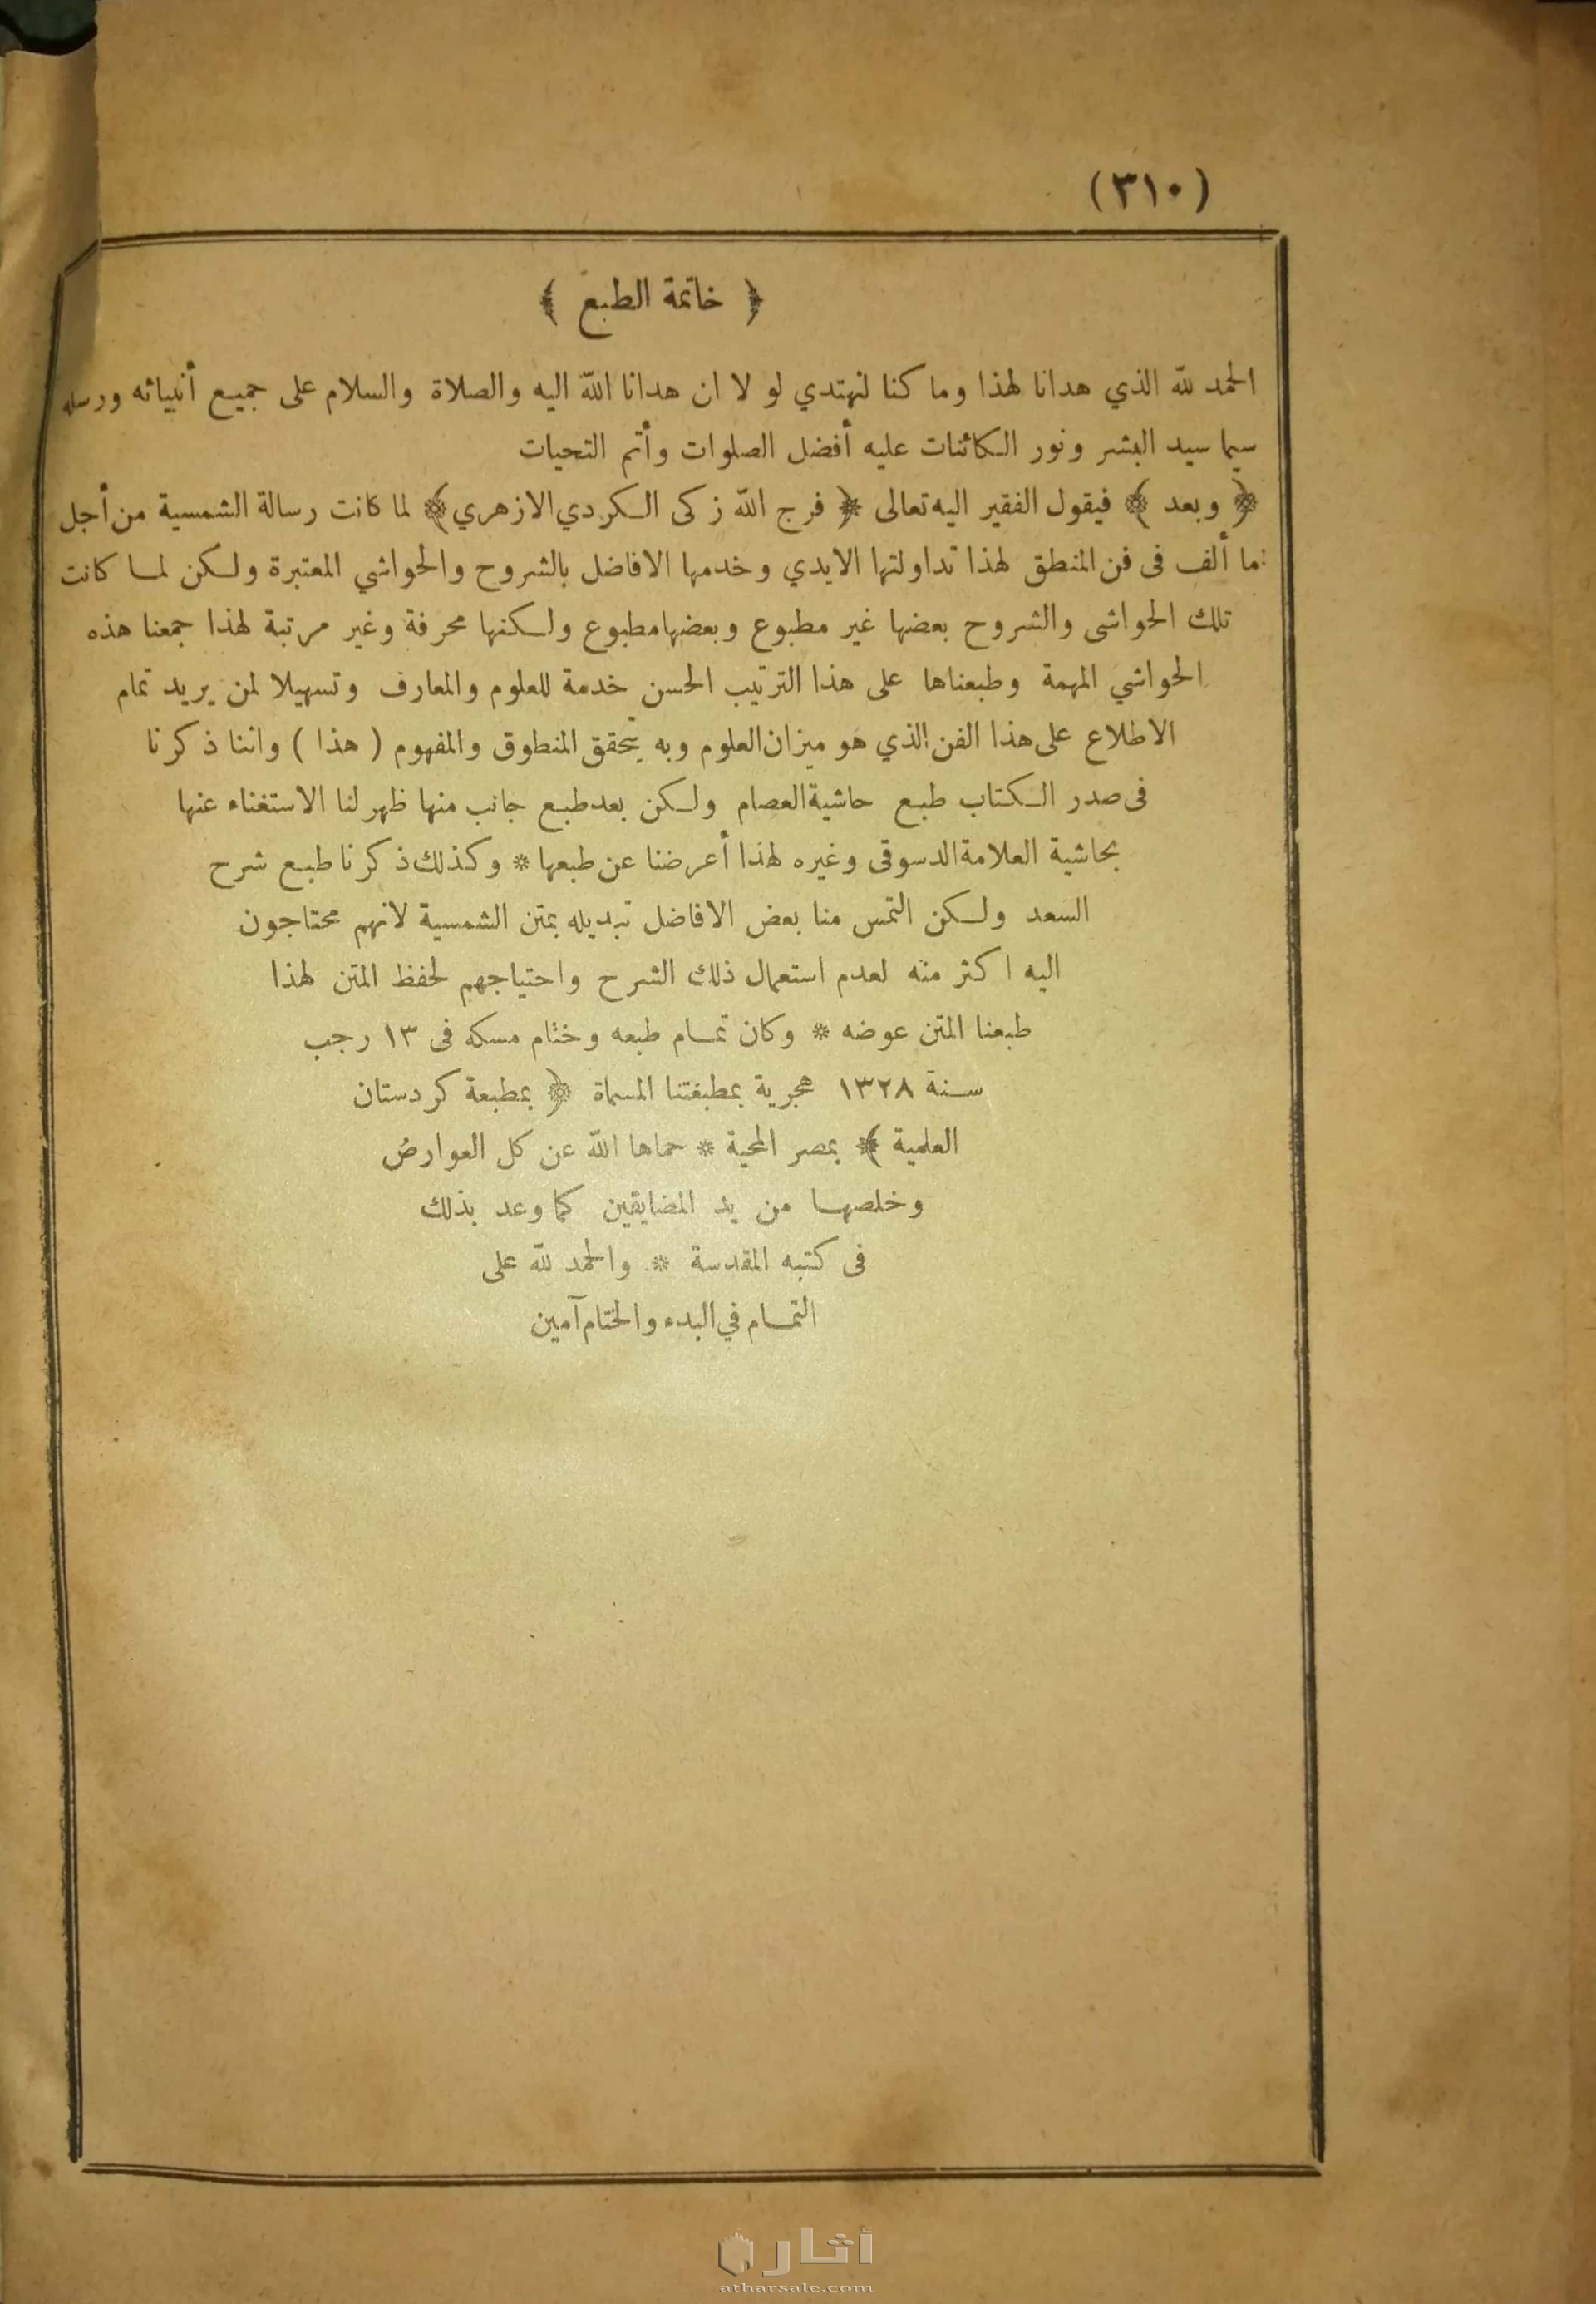 (٣١٠)
﴿ خاتمة الطبع ﴾
الحمد لله الذي هدانا لهذا وما كنا لنهتدي لو لا ان هدانا الله اليه والصلاة والسلام على جميع أنبيائه ورسله
سيما سيد البشر ونور الكائنات عليه أفضل الصلوات وأتم التحيات
﴿ وبعد ﴾ فيقول الفقير اليه تعالى ﴿ فرج الله زكى الكردي الازهري ﴾ لما كانت رسالة الشمسية من أجل
ما ألف فى فن المنطق لهذا تداولتها الايدي وخدمها الافاضل بالشروح والحواشي المعتبرة ولكن لما كانت
تلك الحواشى والشروح بعضها غير مطبوع وبعضها مطبوع ولكنها محرفة وغير مرتبة لهذا جمعنا هذه
الحواشي المهمة وطبعناها على هذا الترتيب الحسن خدمة للعلوم والمعارف وتسهيلا لمن يريد تمام
الاطلاع على هذا الفن الذي هو ميزان العلوم وبه يتحقق المنطوق والمفهوم ( هذا ) واننا ذكرنا
فى صدر الكتاب طبع حاشية العصام ولكن بعد طبع جانب منها ظهر لنا الاستغناء عنها
بحاشية العلامة الدسوقى وغيره لهذا أعرضنا عن طبعها * وكذلك ذكرنا طبع شرح
السعد ولكن التمس منا بعض الافاضل تبديله بمتن الشمسية لانهم محتاجون
اليه اكثر منه لعدم استعمال ذلك الشرح واحتياجهم لحفظ المتن لهذا
طبعنا المتن عوضه * وكان تمام طبعه وختام مسكه فى ١٣ رجب
سنة ١٣٢٨ هجرية بمطبعتنا المسماة ﴿ بمطبعة كردستان
العلمية ﴾ بمصر المحمية * حماها الله عن كل العوارض
وخلصها من يد المضايقين كما وعد بذلك
فى كتبه المقدسة * والحمد لله على
التمام في البدء والختام آمين
أثار
atharsale.com